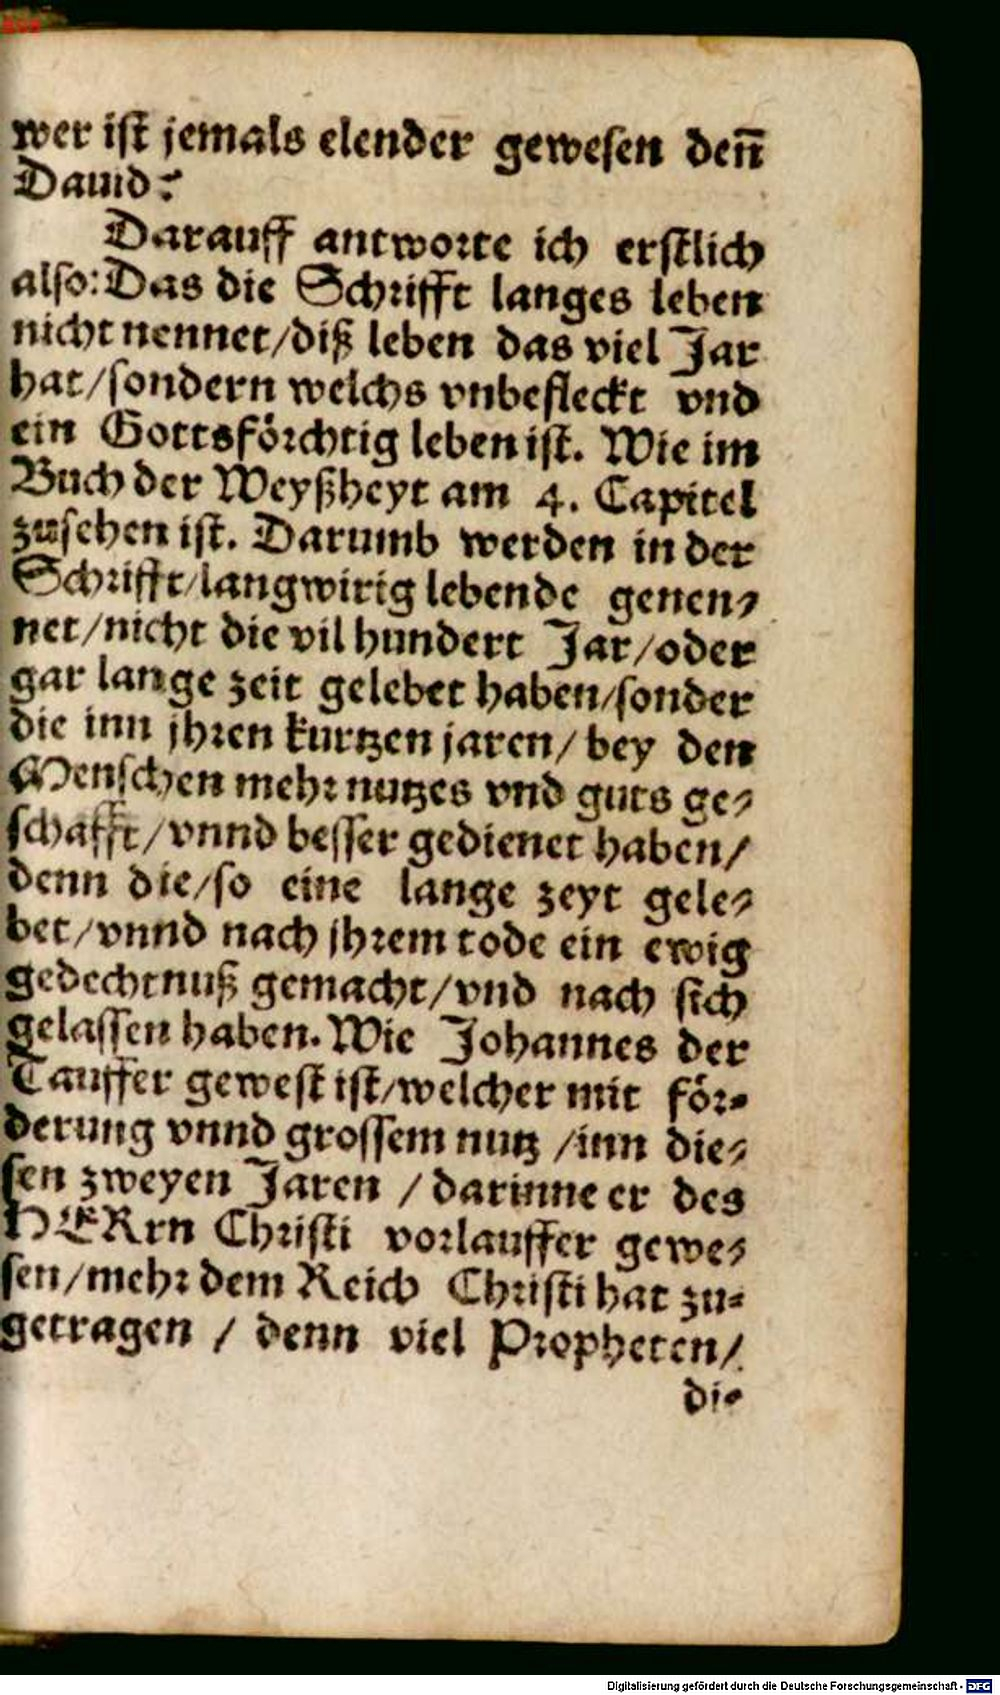 wer ist jemals elender gewesen den̄
Dauid?
Darauff antworte ich erstlich
also: Das die Schrifft langes leben
nicht nennet/diß leben das viel Jar
hat/sondern welchs vnbefleckt vnd
ein Gottsförchtig leben ist. Wie im
Buch der Weyßheyt am 4. Capitel
zusehen ist. Darumb werden in der
Schrifft/langwirig lebende genen⸗
net/nicht die vil hundert Jar/oder
gar lange zeit gelebet haben/sonder
die inn jhren kurtzen jaren/bey den
Menschen mehr nutzes vnd guts ge⸗
schafft/vnnd besser gedienet haben/
denn die/so eine lange zeyt gele⸗
bet/vnnd nach jhrem tode ein ewig
gedechtnuß gemacht/vnd nach sich
gelassen haben. Wie Johannes der
Tauffer gewest ist/welcher mit för⸗
derung vnnd grossem nutz /inn die⸗
sen zweyen Jaren / darinne er des
HERrn Christi vorlauffer gewe⸗
sen/mehr dem Reich Christi hat zu⸗
getragen / denn viel Propheten/
di⸗
Digitalisierung gefördert durch die Deutsche Forschungsgemeinschaft - DFG